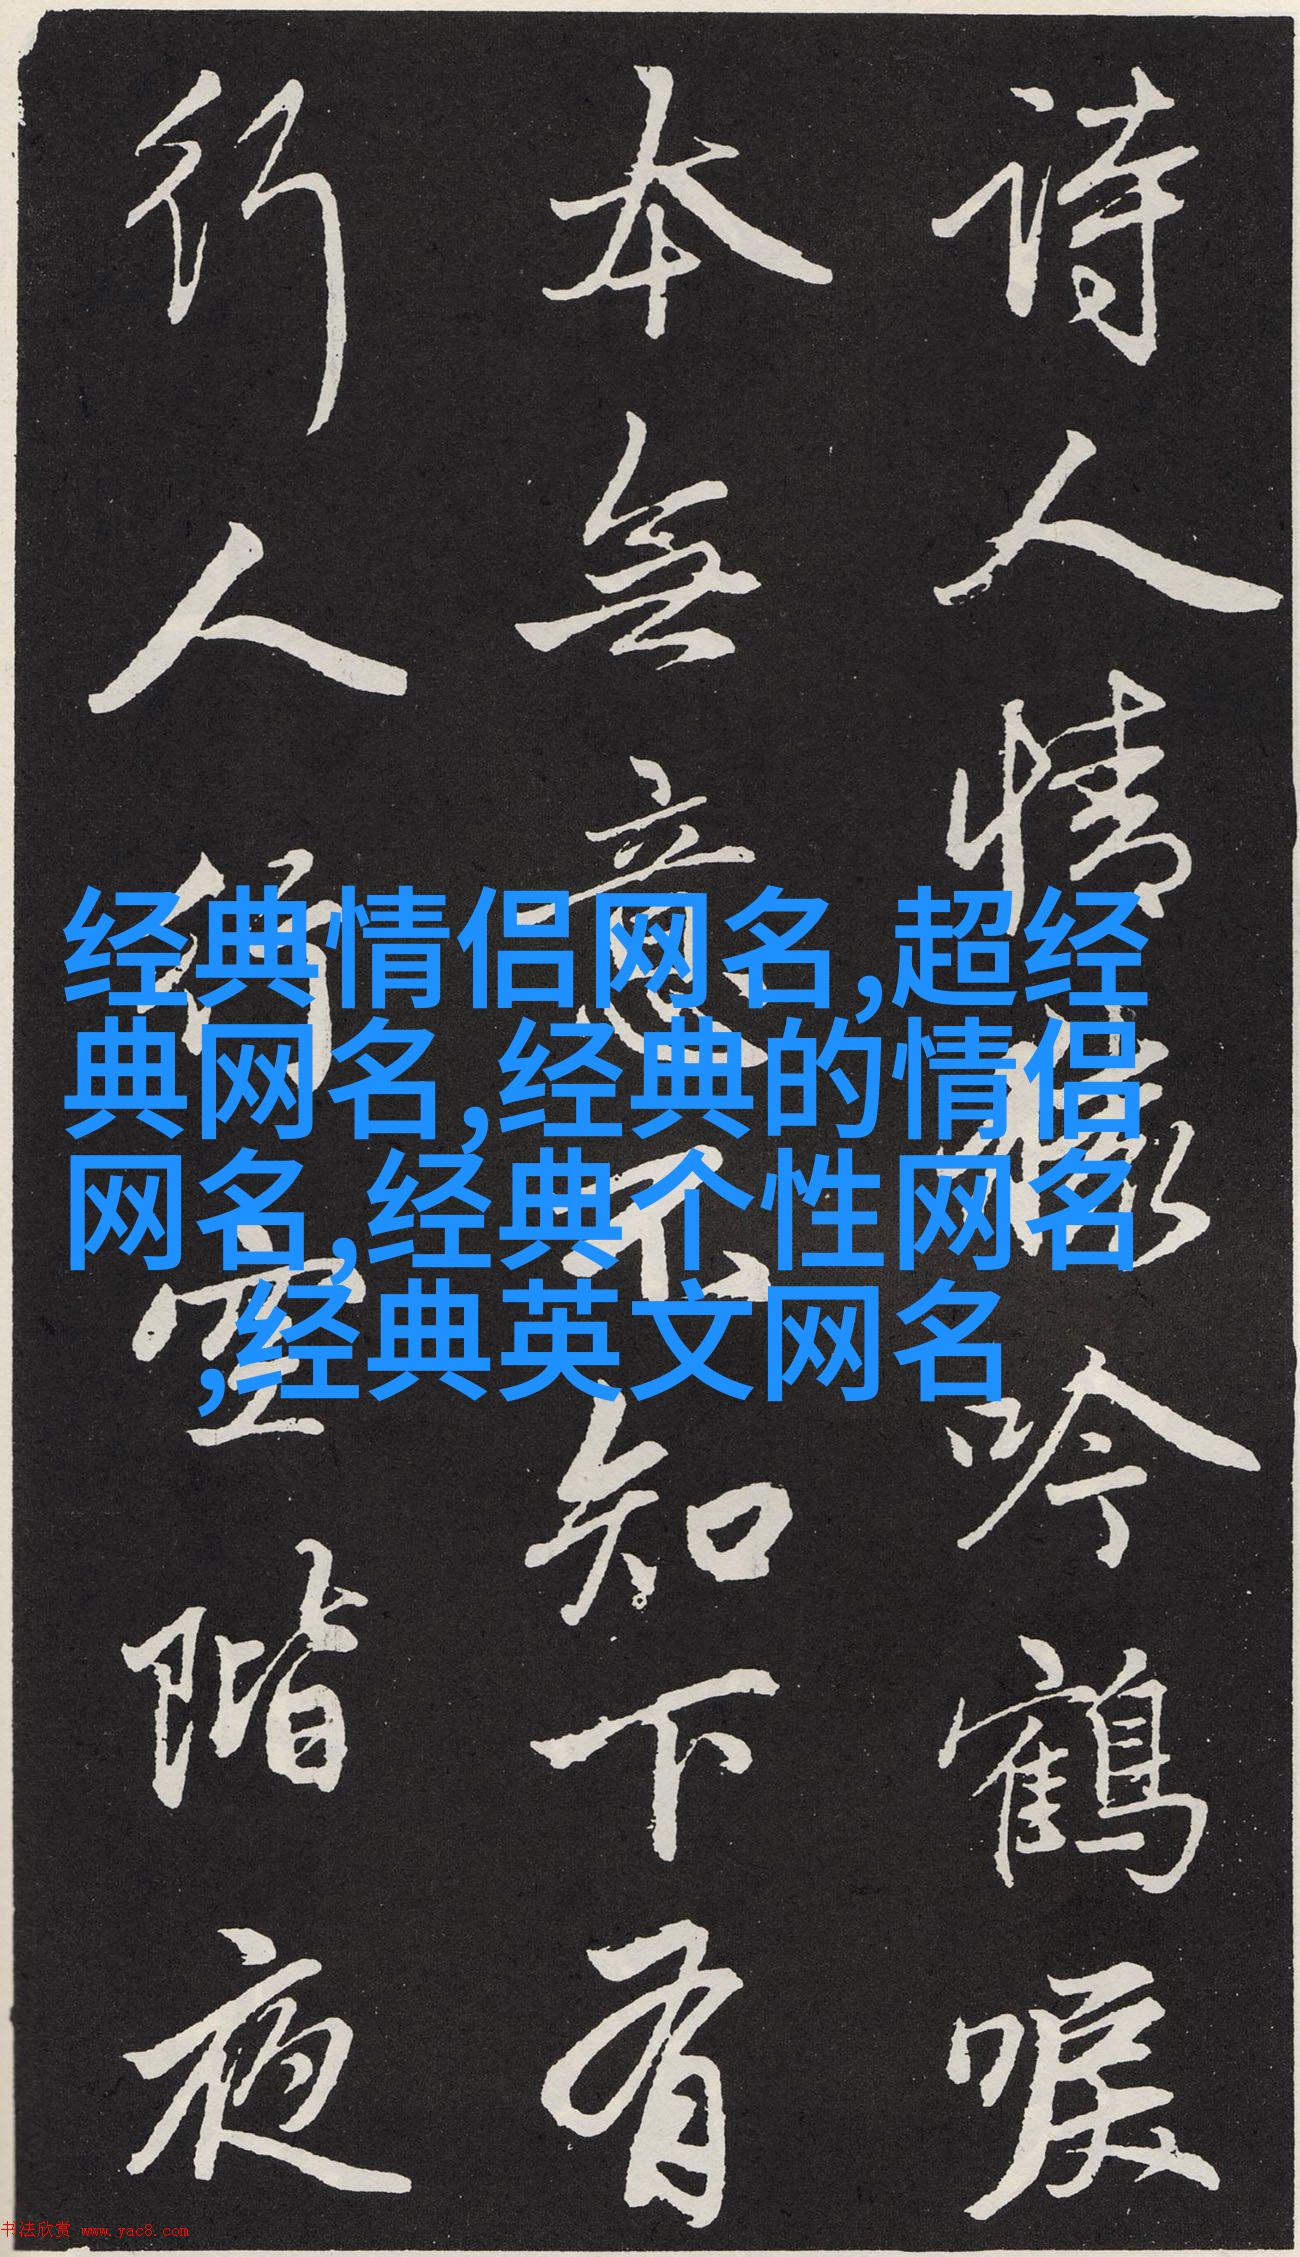 詩人情吟鶴唳
本無意不知下有
行人空階夜
经典情侣网名,超经
典网名,经典的情侣
网名,经典个性网名
,经典英文网名
书法欣赏 www.yac8.com